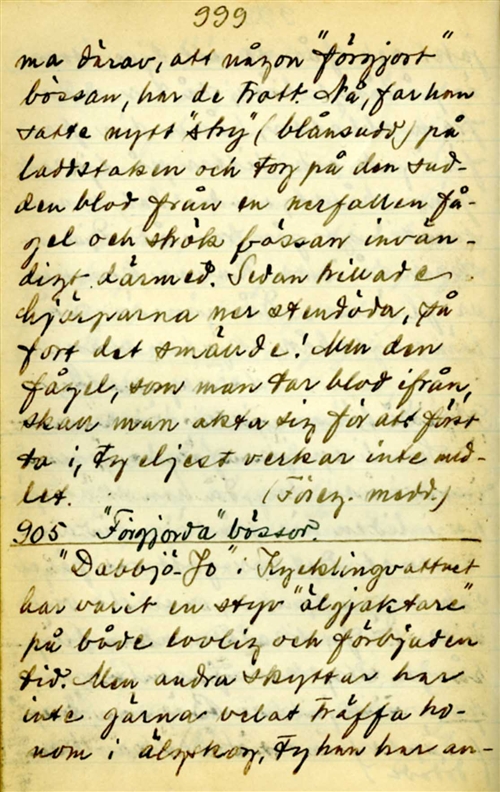 999
ma därav, att någon "förgjort"
bössan, har de trott. Nå, far han
satte nytt "skry" (blånsudd) på
laddstaken och tog på den sud-
den blod från en nerfallen få-
gel och strök bössan invän-
digt därmed. Sedan trillade
hjärparna ner stendöda, så
fort det smällde! Men den
fågel, som man tar blod ifrån,
skall man akta sig för att först
ta i, ty eljest verkar inte med-
let. (Föreg. medd.)
905 "Förgjorda" bössor.
"Dabbjö-Jo" i Kycklingvattnet
har varit en styv "älgjaktare"
på både lovlig och förbjuden
tid. Men andra skyttar har
inte gärna velat träffa ho-
nom i älgskog, ty han har an-